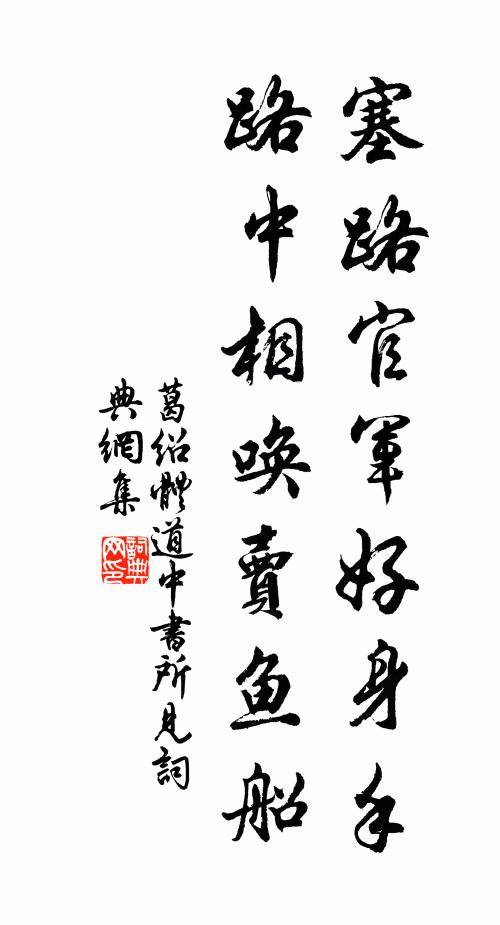 塞路官軍好身手
路中相喚賣鱼船
葛绍體道中書所見詞
典網集
詞典网印